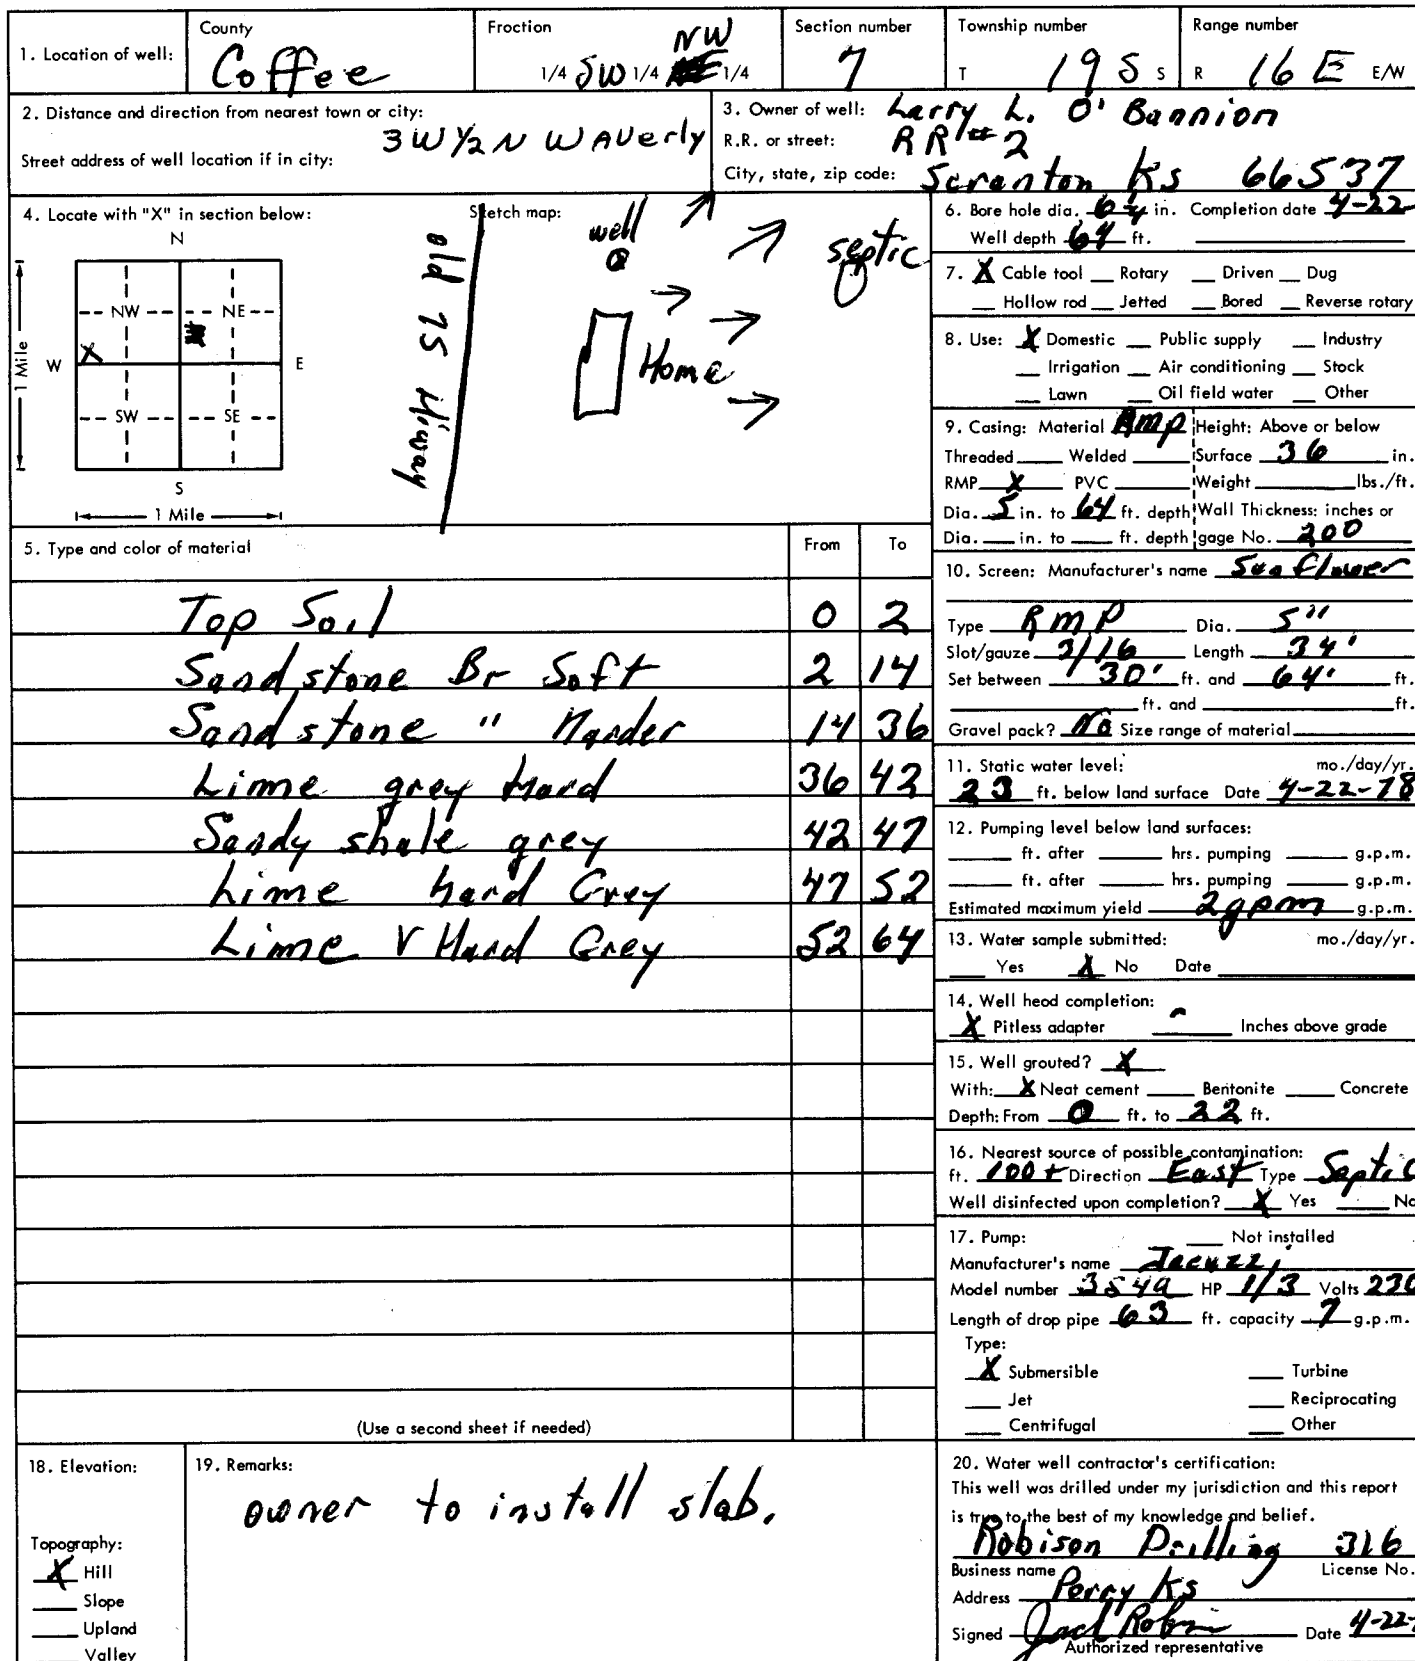 1. Location of well:
County
Coffee
Froction
1/4 SW 1/4 NW 1/4
Section number
7
Township number
T 19 S S
Range number
R 16 E E/W
2. Distance and direction from nearest town or city:
3 W 1/2 N WAverly
Street address of well location if in city:
3. Owner of well: Larry L. O'Bannion
R.R. or street: RR #2
City, state, zip code: Scranton Ks 66537
4. Locate with "X" in section below:
N
NW NE
X
W E
SW SE
S
1 Mile
1 Mile
Sketch map:
old 75 Hiway
well
septic
Home
5. Type and color of material From To
Top Soil 0 2
Sandstone Br Soft 2 14
Sandstone " Harder 14 36
Lime grey Hard 36 42
Sandy shale grey 42 47
Lime hard Grey 47 52
Lime V Hard Grey 52 64
(Use a second sheet if needed)
6. Bore hole dia. 6 1/4 in. Completion date 4-22-
Well depth 64 ft.
7. X Cable tool Rotary Driven Dug
Hollow rod Jetted Bored Reverse rotary
8. Use: X Domestic Public supply Industry
Irrigation Air conditioning Stock
Lawn Oil field water Other
9. Casing: Material RMP Height: Above or below
Threaded Welded Surface 36 in.
RMP X PVC Weight lbs./ft.
Dia. 5 in. to 64 ft. depth Wall Thickness: inches or
Dia. in. to ft. depth gage No. 200
10. Screen: Manufacturer's name Sunflower
Type RMP Dia. 5"
Slot/gauze 3/16 Length 34'
Set between 30' ft. and 64' ft.
ft. and ft.
Gravel pack? No Size range of material
11. Static water level: mo./day/yr.
23 ft. below land surface Date 4-22-78
12. Pumping level below land surfaces:
ft. after hrs. pumping g.p.m.
ft. after hrs. pumping g.p.m.
Estimated maximum yield 2gpm g.p.m.
13. Water sample submitted: mo./day/yr.
Yes X No Date
14. Well head completion:
X Pitless adapter Inches above grade
15. Well grouted? X
With: X Neat cement Bentonite Concrete
Depth: From 0 ft. to 22 ft.
16. Nearest source of possible contamination:
ft. 100+ Direction East Type Septic
Well disinfected upon completion? X Yes No
17. Pump: Not installed
Manufacturer's name Jacuzzi
Model number HP 1/3 Volts 230
Length of drop pipe 63 ft. capacity 7 g.p.m.
Type:
X Submersible Turbine
Jet Reciprocating
Centrifugal Other
18. Elevation:
Topography:
X Hill
Slope
Upland
Valley
19. Remarks:
owner to install slab.
20. Water well contractor's certification:
This well was drilled under my jurisdiction and this report
is true to the best of my knowledge and belief.
Robison Drilling 316
Business name License No.
Address Perry Ks
Signed Jack Robin Date 4-22-
Authorized representative